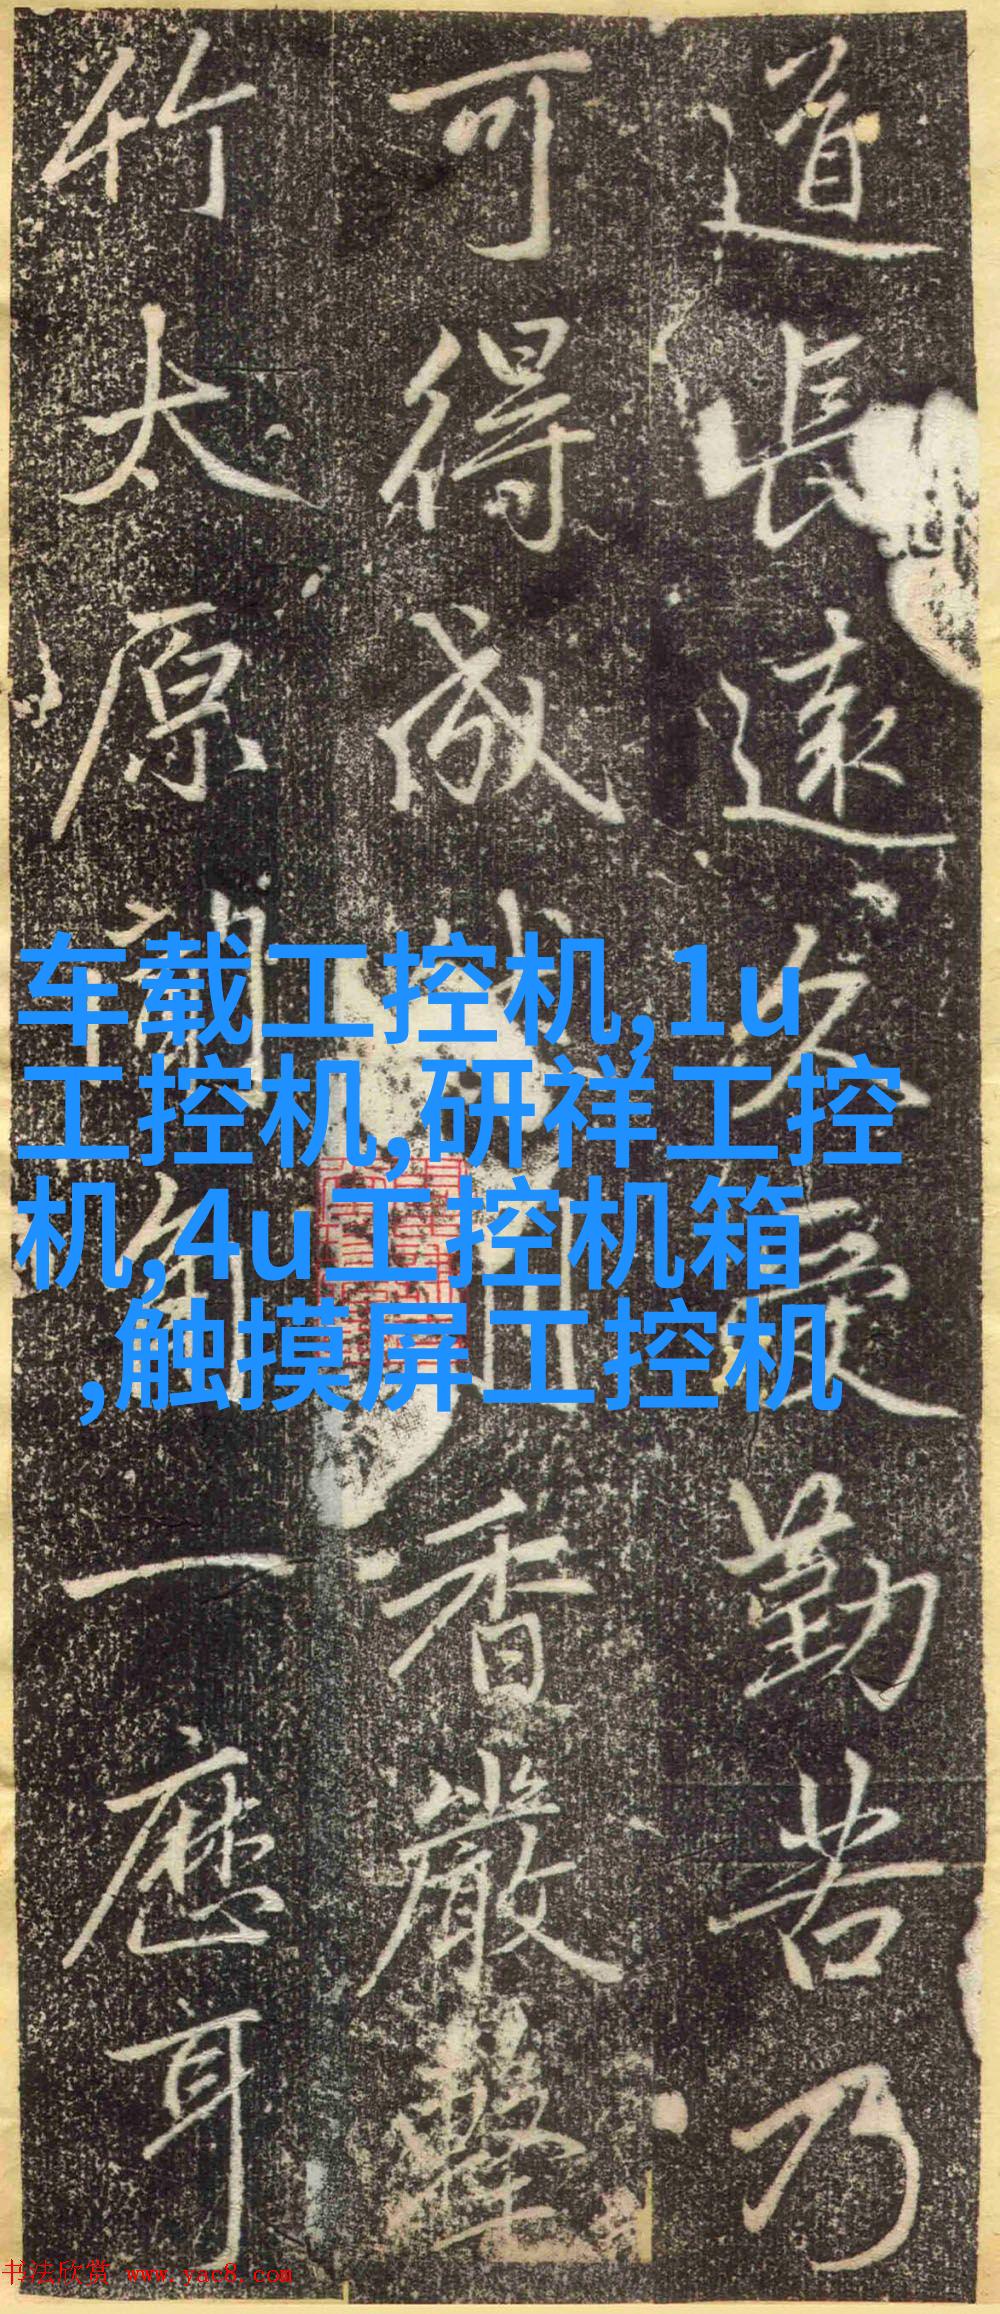 道長遠久受勤苦乃
可得成香嚴擊
竹太原一應耳
车载工控机,1u
工控机,研祥工控
机,4u工控机箱
,触摸屏工控机
书法欣赏 www.yac8.com